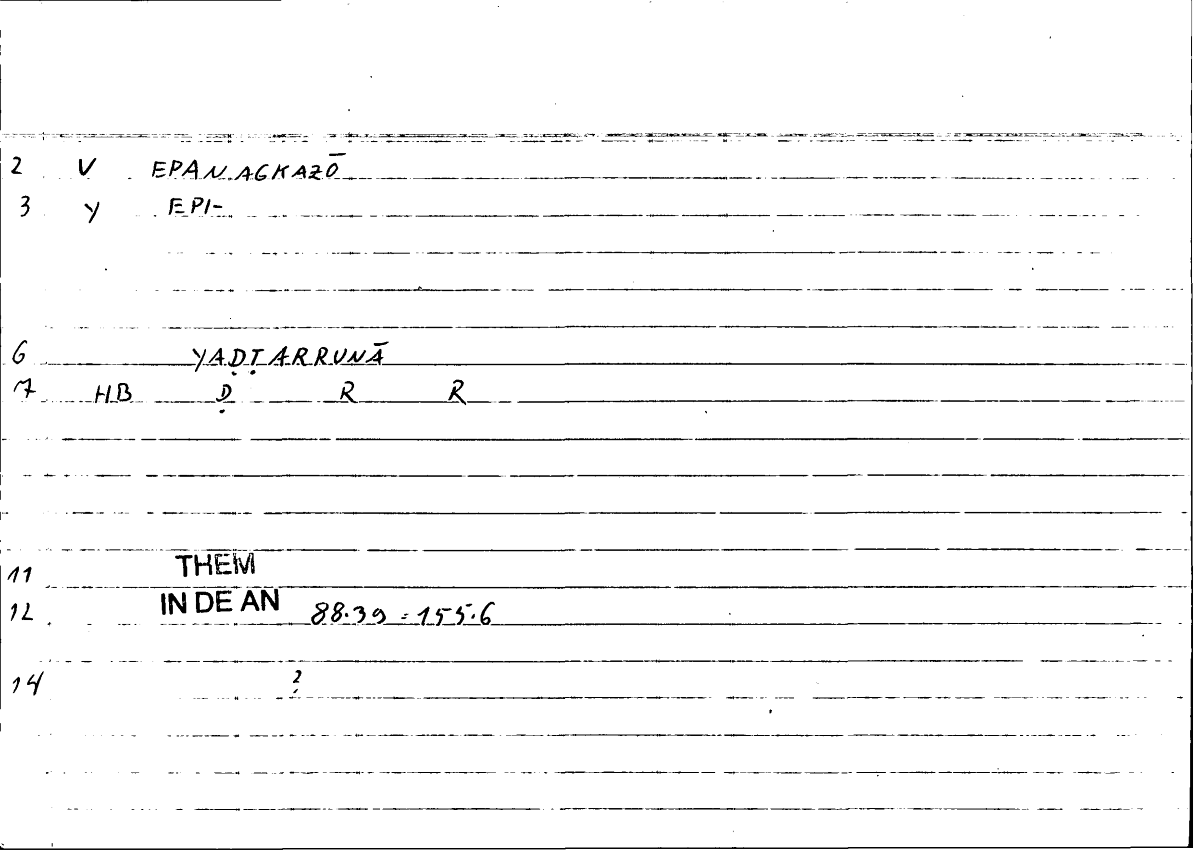 2 V EPANAGKAZŌ
3 Y EPI-
6 YAḌṬARRUNĀ
7 HB Ḍ R R
11 THEM
12 IN DE AN 88.39 = 155.6
14 ?